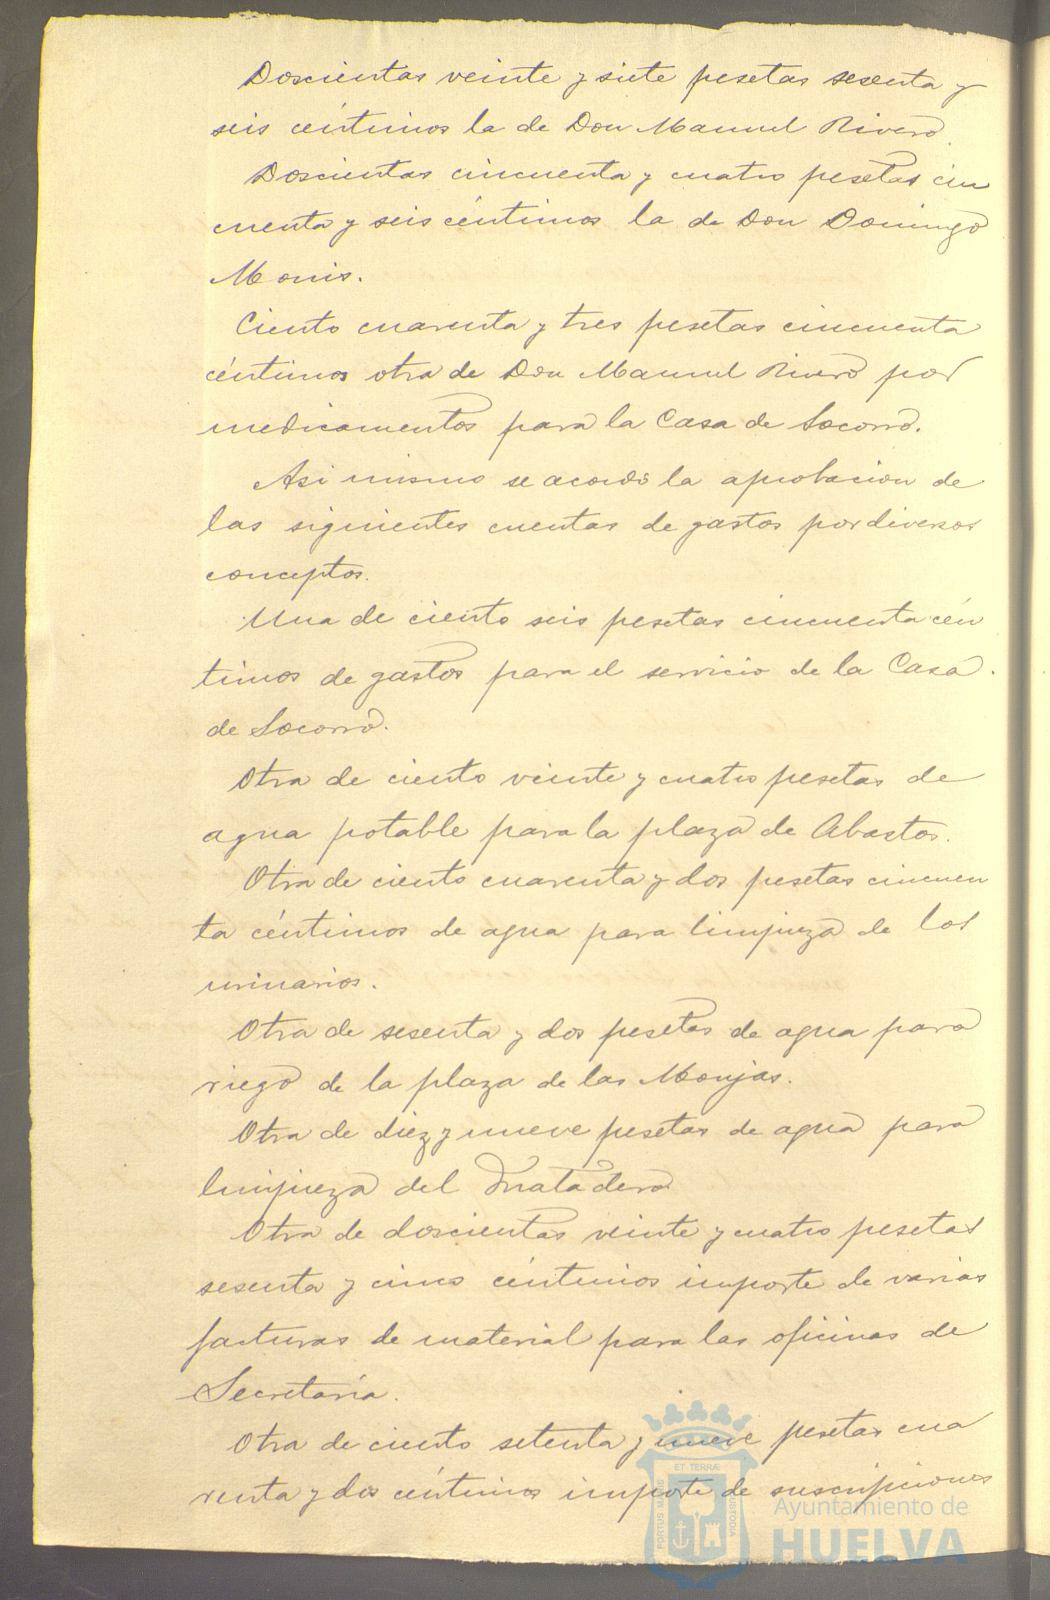 Doscientas veinte y siete pesetas sesenta y
seis céntimos la de Don Manuel Rivero
Doscientas cincuenta y cuatro pesetas cin
cuenta y seis céntimos la de Don Domingo
Monis.
Ciento cuarenta y tres pesetas cincuenta
céntimos otra de Don Manuel Rivero por
medicamentos para la Casa de Socorro.
Asi mismo se acordó la aprobacion de
las siguientes cuentas de gastos por diversos
conceptos.
Una de ciento seis pesetas cincuenta cén
timos de gastos para el servicio de la Casa
de Socorro.
Otra de ciento veinte y cuatro pesetas de
agua potable para la plaza de Abastos.
Otra de ciento cuarenta y dos pesetas cincuen
ta céntimos de agua para limpieza de los
urinarios.
Otra de sesenta y dos pesetas de agua para
riego de la plaza de las Monjas.
Otra de diez y nueve pesetas de agua para
limpieza del Matadero
Otra de doscientas veinte y cuatro pesetas
sesenta y cinco céntimos importe de varias
facturas de material para las oficinas de
Secretaría.
Otra de ciento setenta y nueve pesetas cua
renta y dos céntimos importe de suscripciones
PORTUS MARIS ET TERRÆ CUSTODIA
Ayuntamiento de
HUELVA